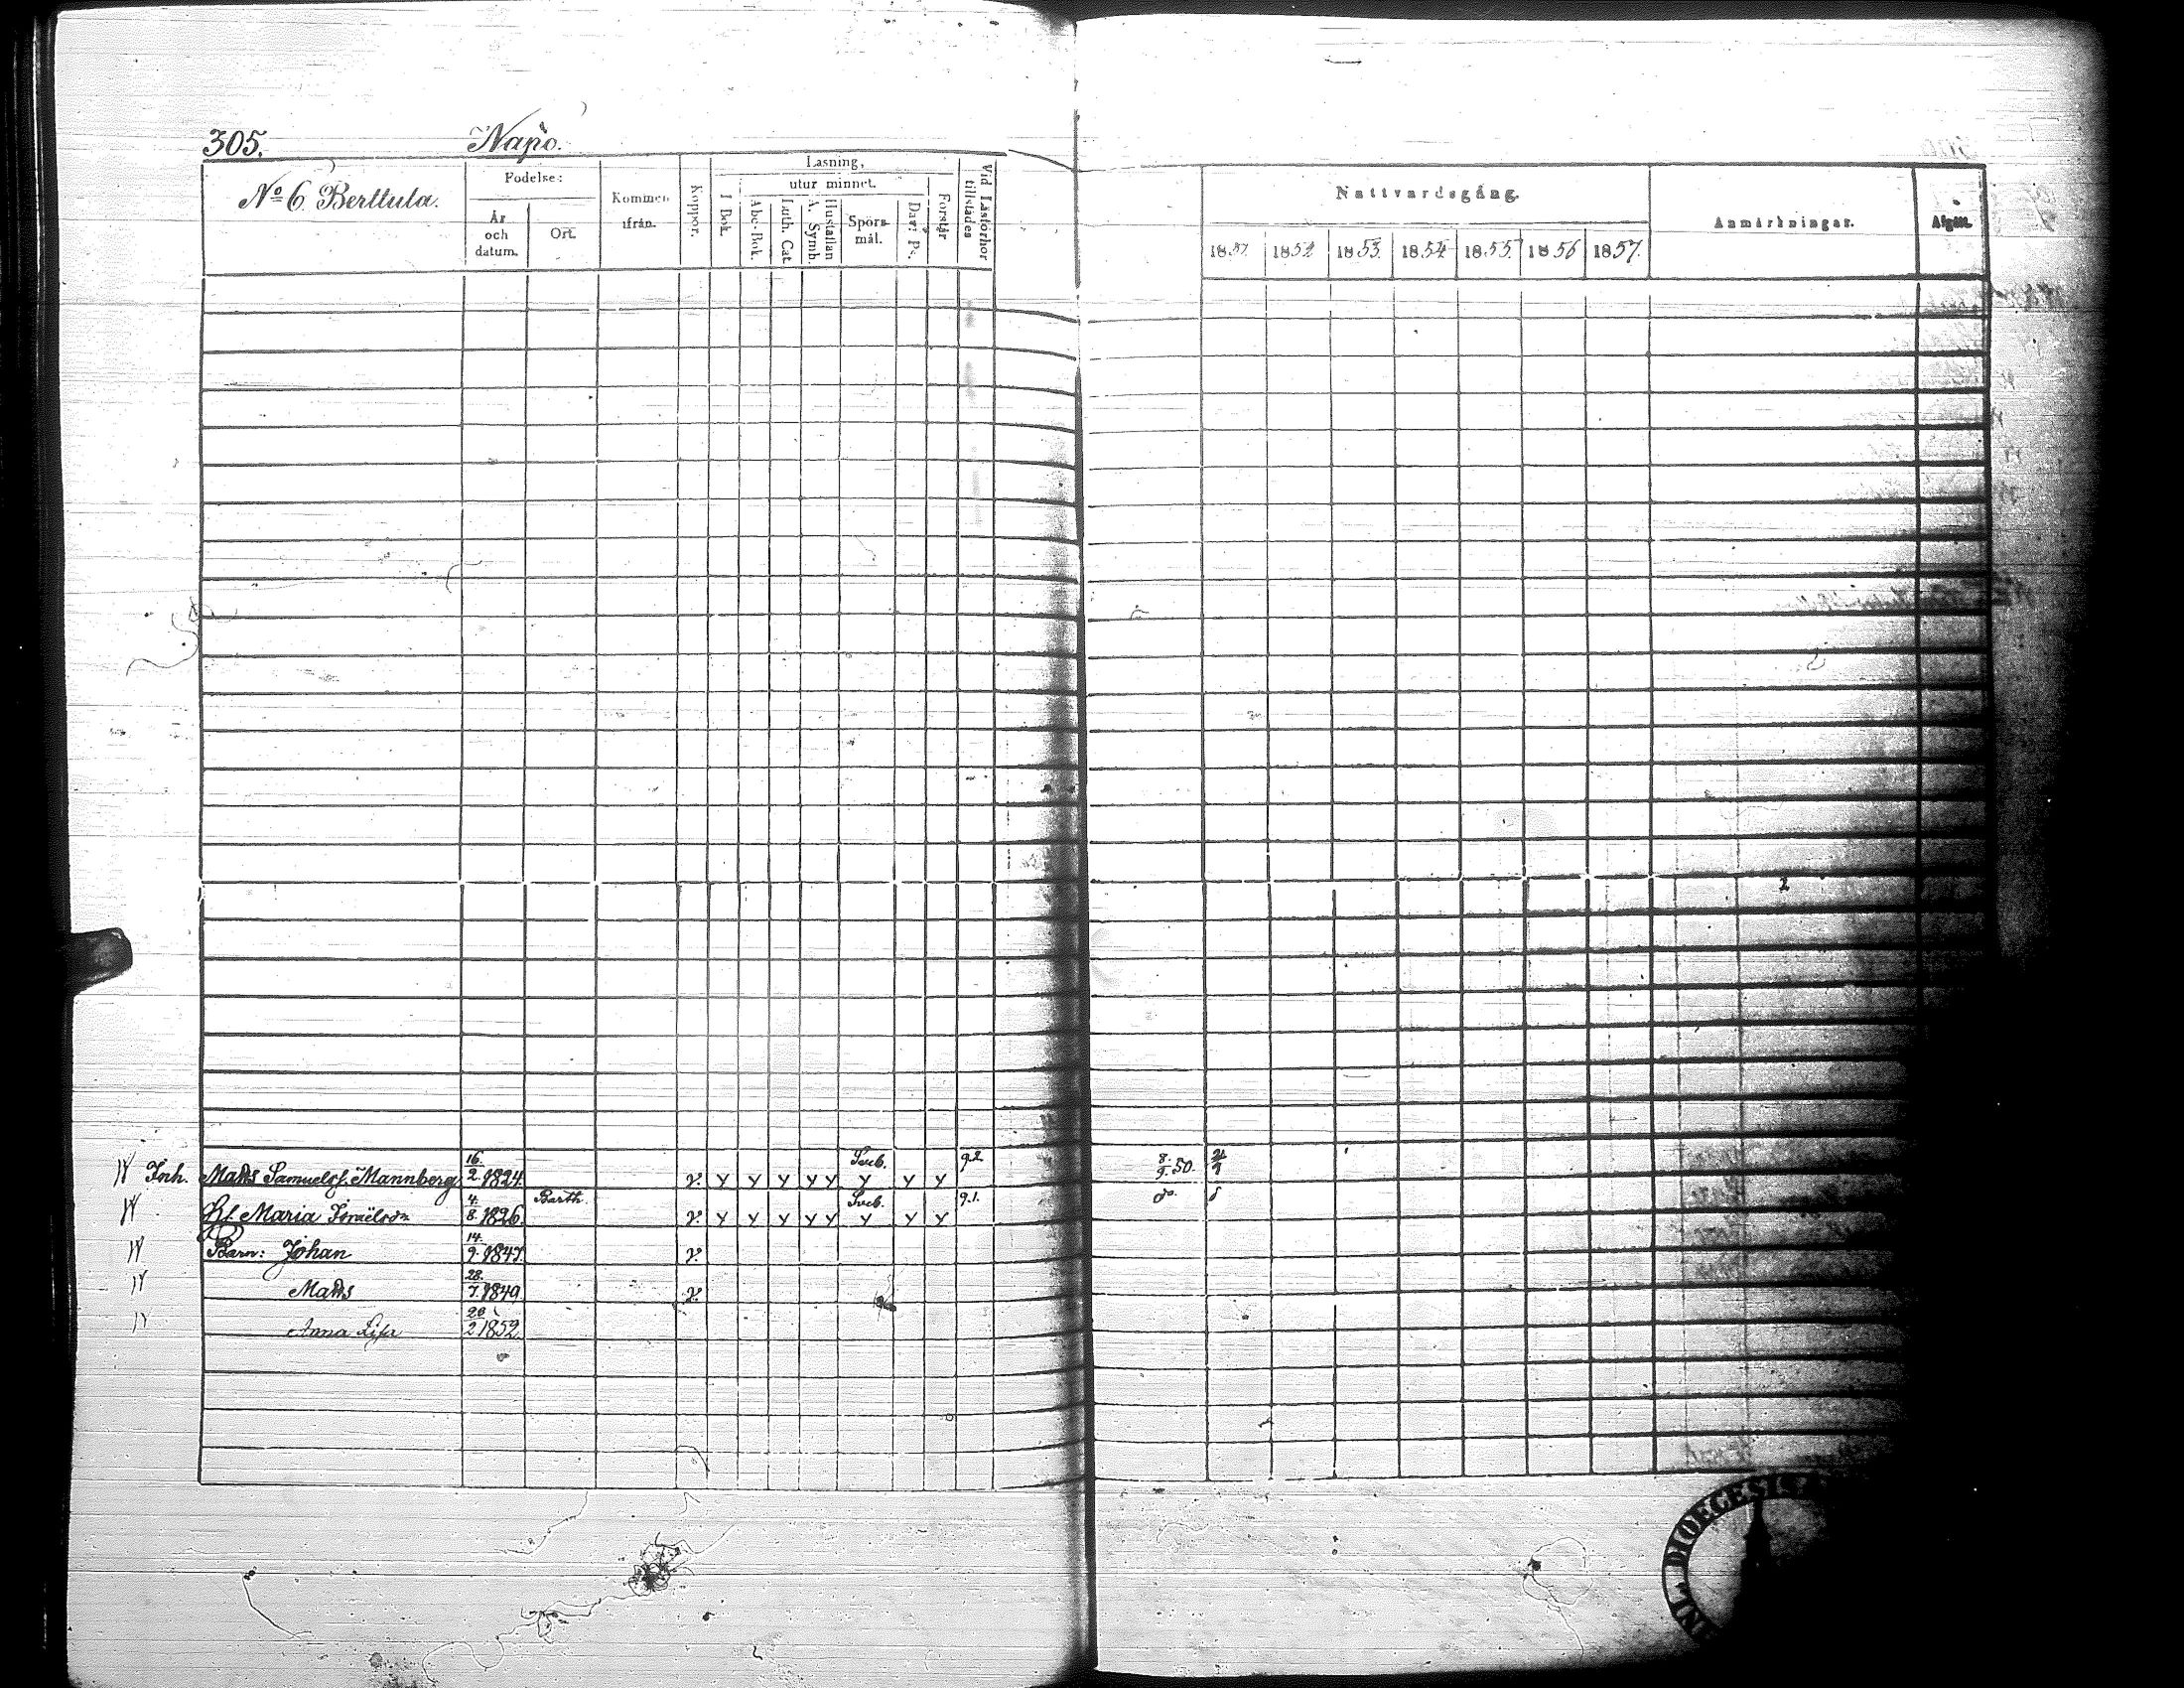 305. Napo.
No 6 Berttula.
Födelse:
År och datum.
Ort.
Kommen ifrån.
Koppor.
Läsning,
utur minnet.
I Bok.
Abc-Bok.
Luth. Cat.
Hustaflan A. Symb.
Spörsmål.
Dav: Ps.
Förstår
Vid Läsförhör tillstädes
Nattvardsgång.
1851. 1852 1853. 1854 1855. 1856 1857.
Anmärkningar.
Afgått.
Inh. Matts Samuelsf. Mannberg 16. 2. 1824. v. Y Y Y Y Y Sveb. Y Y Y 8. 9. 50.
Hu. Maria Israëlsdr 4. 8. 1826. v. Y Y Y Y Y Sveb. Y Y Y do.
Barn: Johan 14. 9. 1847. v.
Matts 28. 7. 1849. v.
Anna Lisa 20 2 1852.
DIOECESIS